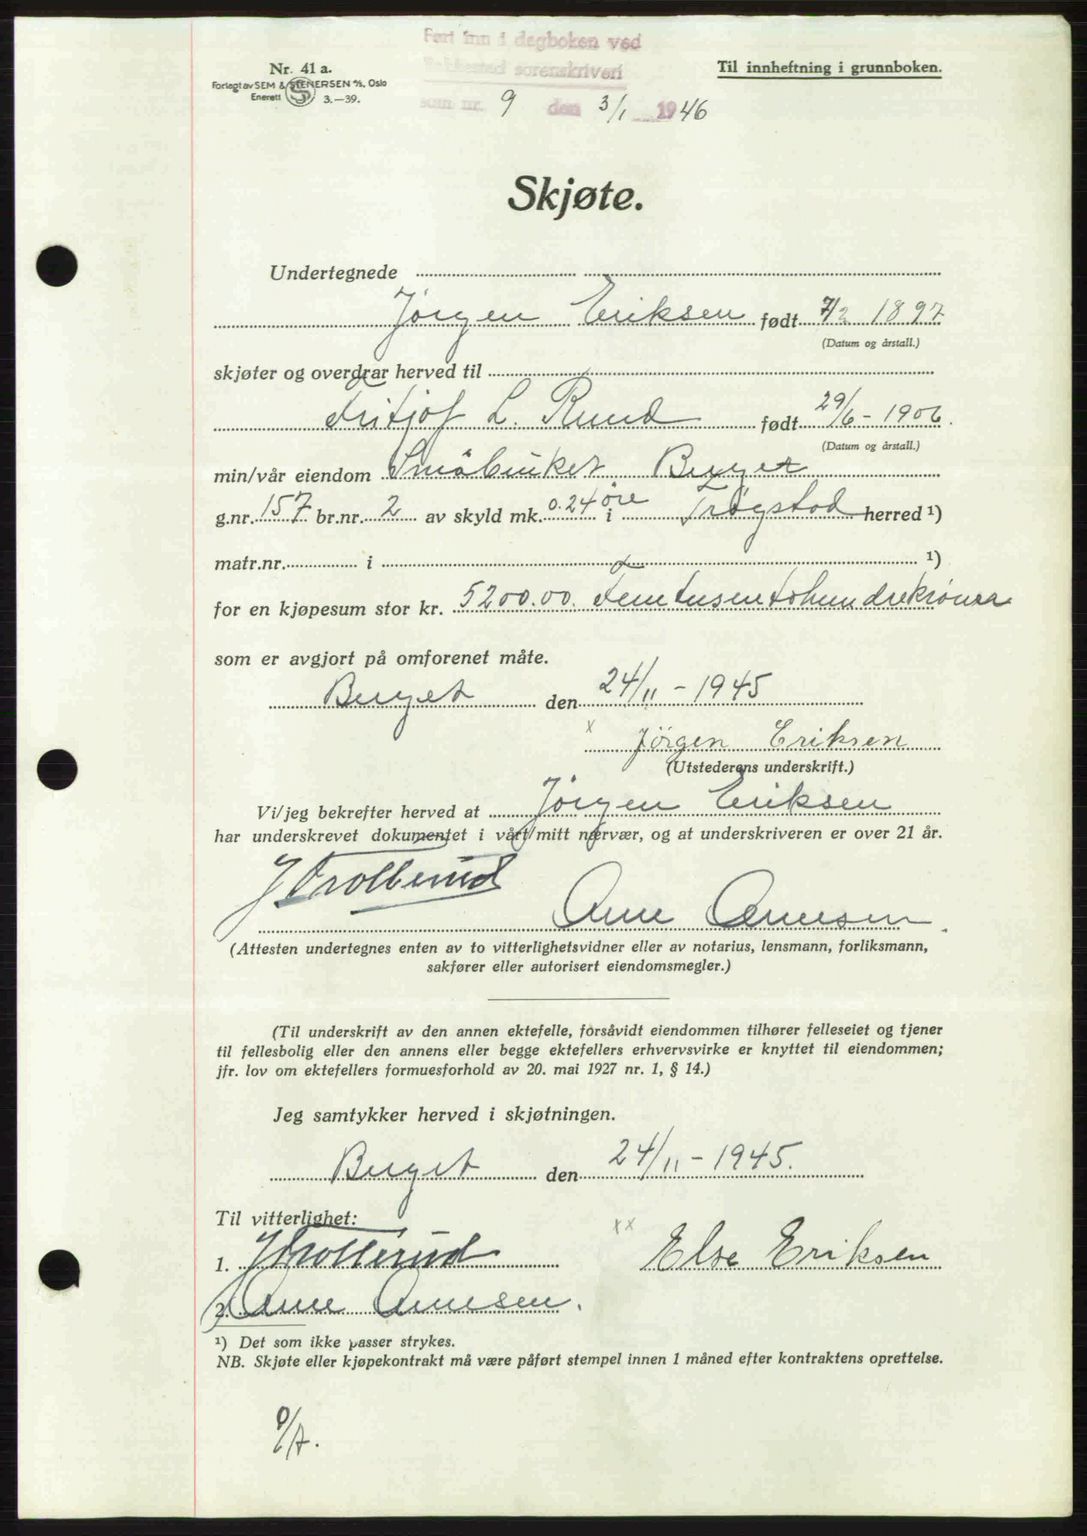 Ført inn i dagboken ved
Rakkestad sorenskriveri
som nr. 9 den 3/1 1946
Nr. 41 a.
Forlagt av SEM & STENERSEN A/S, Oslo
Enerett S 3.—39.
Til innheftning i grunnboken.
Skjøte.
Undertegnede
Jørgen Eriksen født 7/2 1897
(Datum og årstall.)
skjøter og overdrar herved til
Fritjof L. Ruud født 29/6 - 1906.
(Datum og årstall.)
min/vår eiendom Småbruket Berget
g.nr. 157 br.nr. 2 av skyld mk. 0.24 øre i Trøgstad herred ¹)
matr.nr. i ¹)
for en kjøpesum stor kr. 5200.00. Femtusentohundrekroner
som er avgjort på omforenet måte.
Berget den 24/11 - 1945
x Jörgen Eriksen
(Utstederens underskrift.)
Vi/jeg bekrefter herved at Jörgen Eriksen
har underskrevet dokumentet i vårt/mitt nærvær, og at underskriveren er over 21 år.
J Trollerud
Arne Arnesen.
(Attesten undertegnes enten av to vitterlighetsvidner eller av notarius, lensmann, forliksmann,
sakfører eller autorisert eiendomsmegler.)
(Til underskrift av den annen ektefelle, forsåvidt eiendommen tilhører felleseiet og tjener
til fellesbolig eller den annens eller begge ektefellers erhvervsvirke er knyttet til eiendommen;
jfr. lov om ektefellers formuesforhold av 20. mai 1927 nr. 1, § 14.)
Jeg samtykker herved i skjøtningen.
Berget den 24/11 - 1945.
Til vitterlighet:
xx Else Eriksen
1. J Trollerud
2. Arne Arnesen.
¹) Det som ikke passer strykes.
NB. Skjøte eller kjøpekontrakt må være påført stempel innen 1 måned efter kontraktens oprettelse.